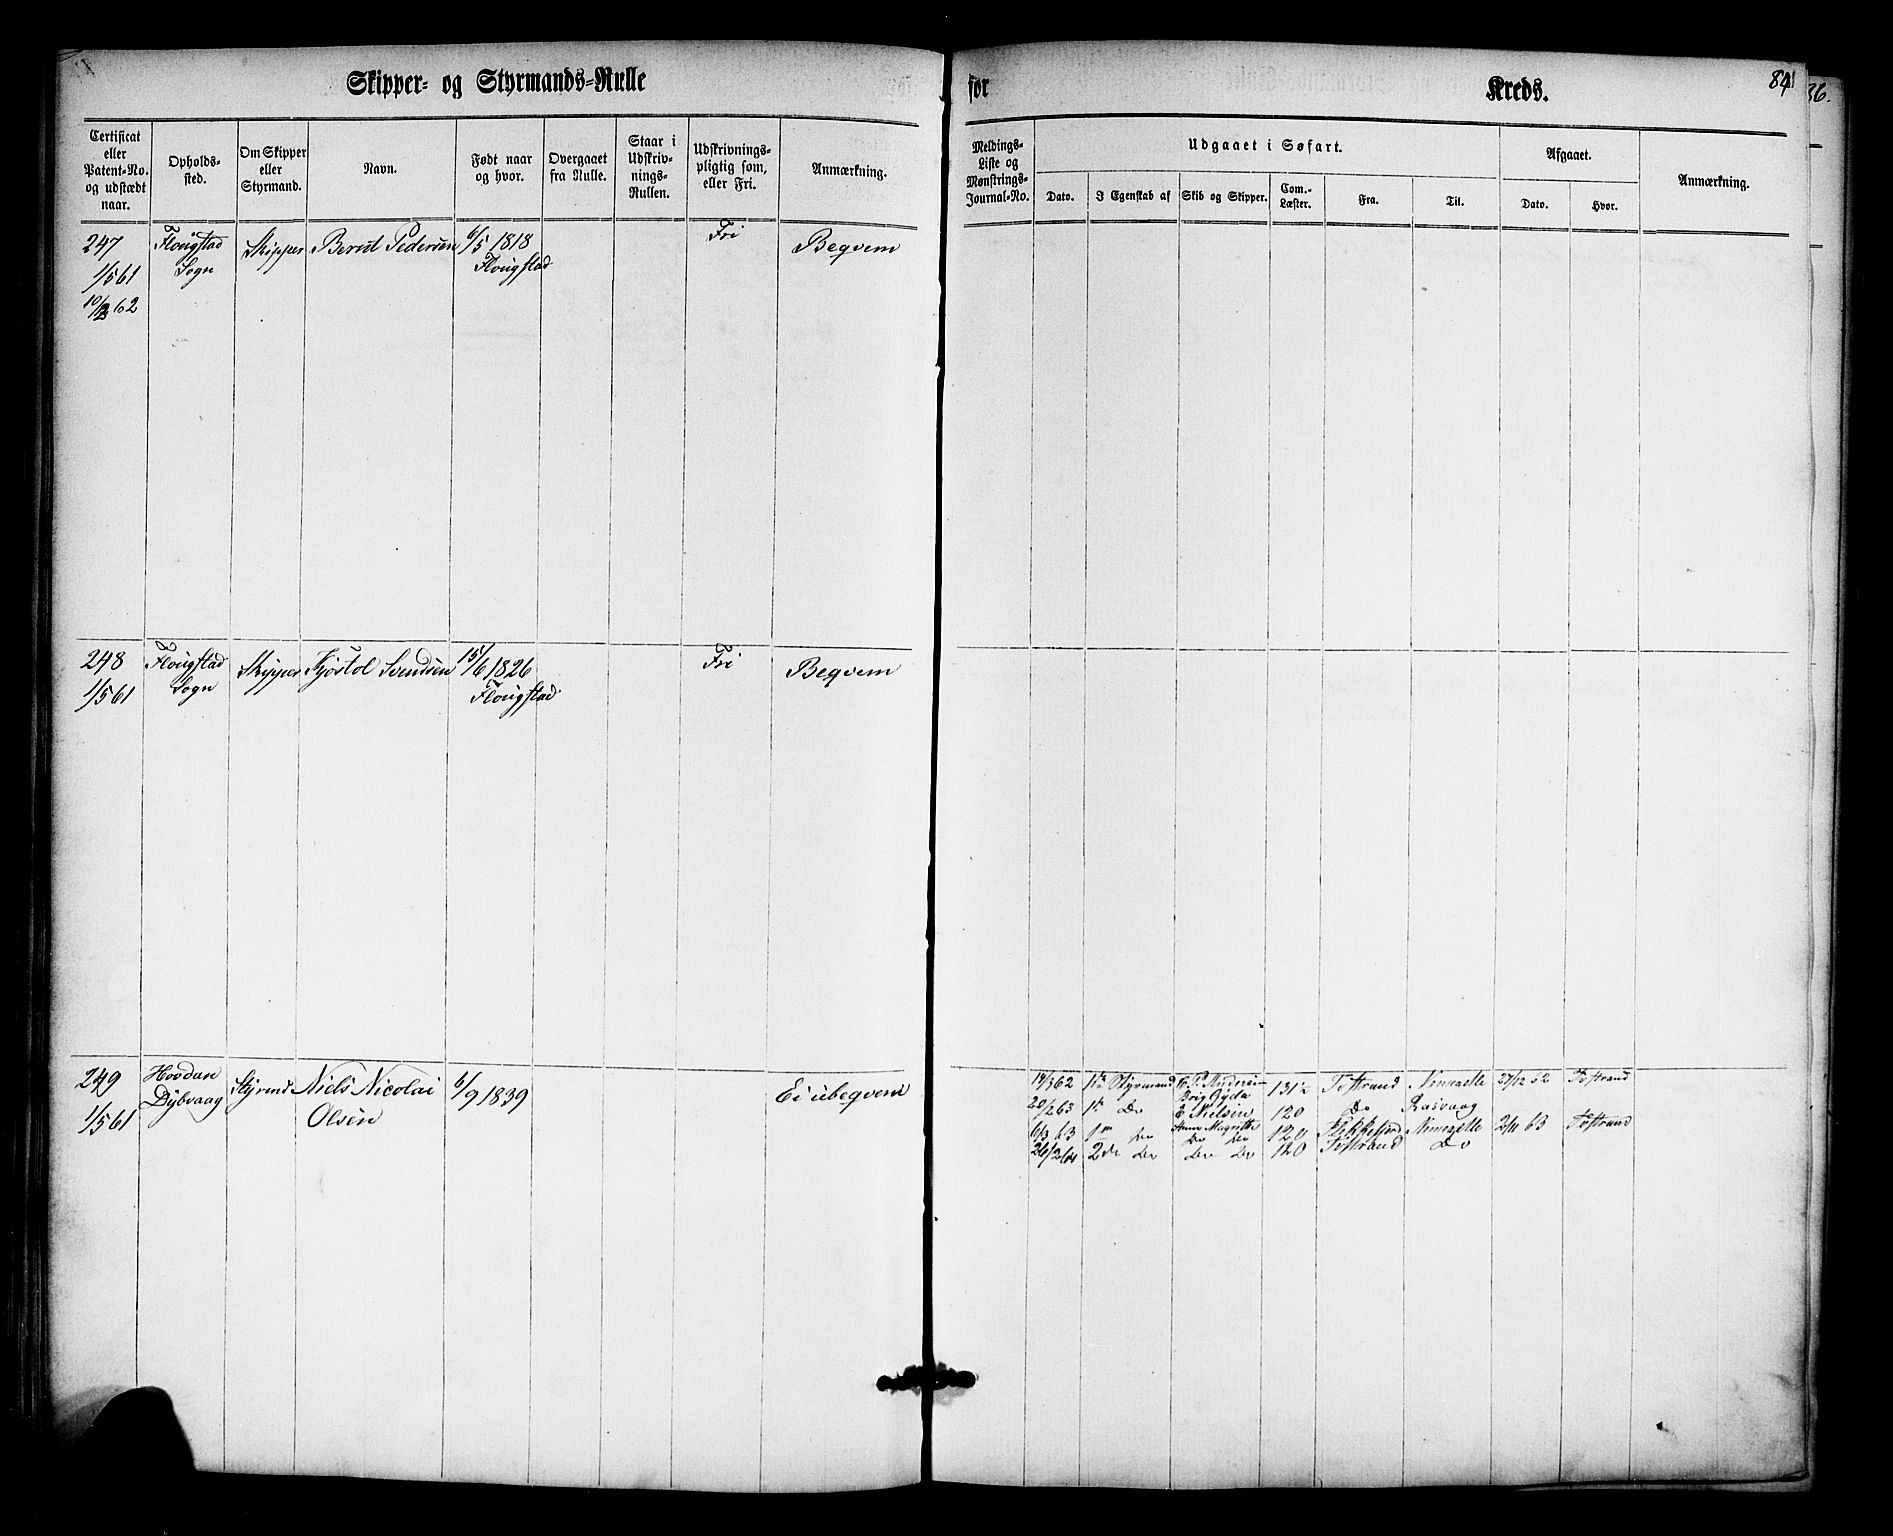 Skipper- og Styrmands-Rulle
for
Kreds.
84
36.
Certificat eller Patent-No. og udstædt naar.
Opholds-sted.
Om Skipper eller Styrmand.
Navn.
Født naar og hvor.
Overgaaet fra Rulle.
Staar i Udskriv-nings-Rullen.
Udskrivnings-pligtig som, eller Fri.
Anmærkning.
Meldings-Liste og Mønstrings-Journal-No.
Udgaaet i Søfart.
Dato.
I Egenskab af
Skib og Skipper.
Com.-Læster.
Fra.
Til.
Afgaaet.
Dato.
Hvor.
Anmærkning.
247 Flougstad Skipper Bernt Pedersen 6/5 1818 Fri Begvem
1/5 61 Sogn Flougstad
10/2 62
248 Flougstad Skipper Kjøstol Svendsen 15/6 1826 Fri Begvem
1/5 61 Sogn Flougstad
249 Hovdan Styrmd Niels Nicolai 6/9 1839 Ei ubeqvem
1/5 61 Dybvaag Olsen
19/3 62 1ste Styrmand 131½ Tvestrand Newcastle 27/12 62 Tvestrand
Brig Gyda
20/2 63 1st Do E Nielsen 120 Do Rasvaag
6/3 63 1m do Anne Magrethe do do 120 Flekkefjord Newcastle 2/11 63 Tvestrand
26/2 64 2de do do do 120 Tvestrand Do